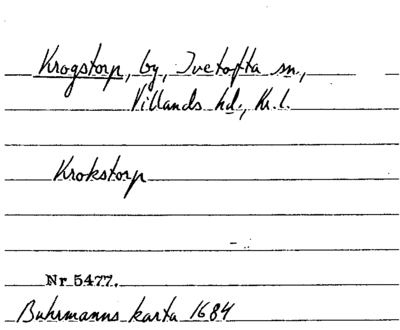 Krogstorp, by, Ivetofta sn,
Villands hd., Kr. l.
Krokstorp
Nr 5477.
Buhrmanns karta 1684